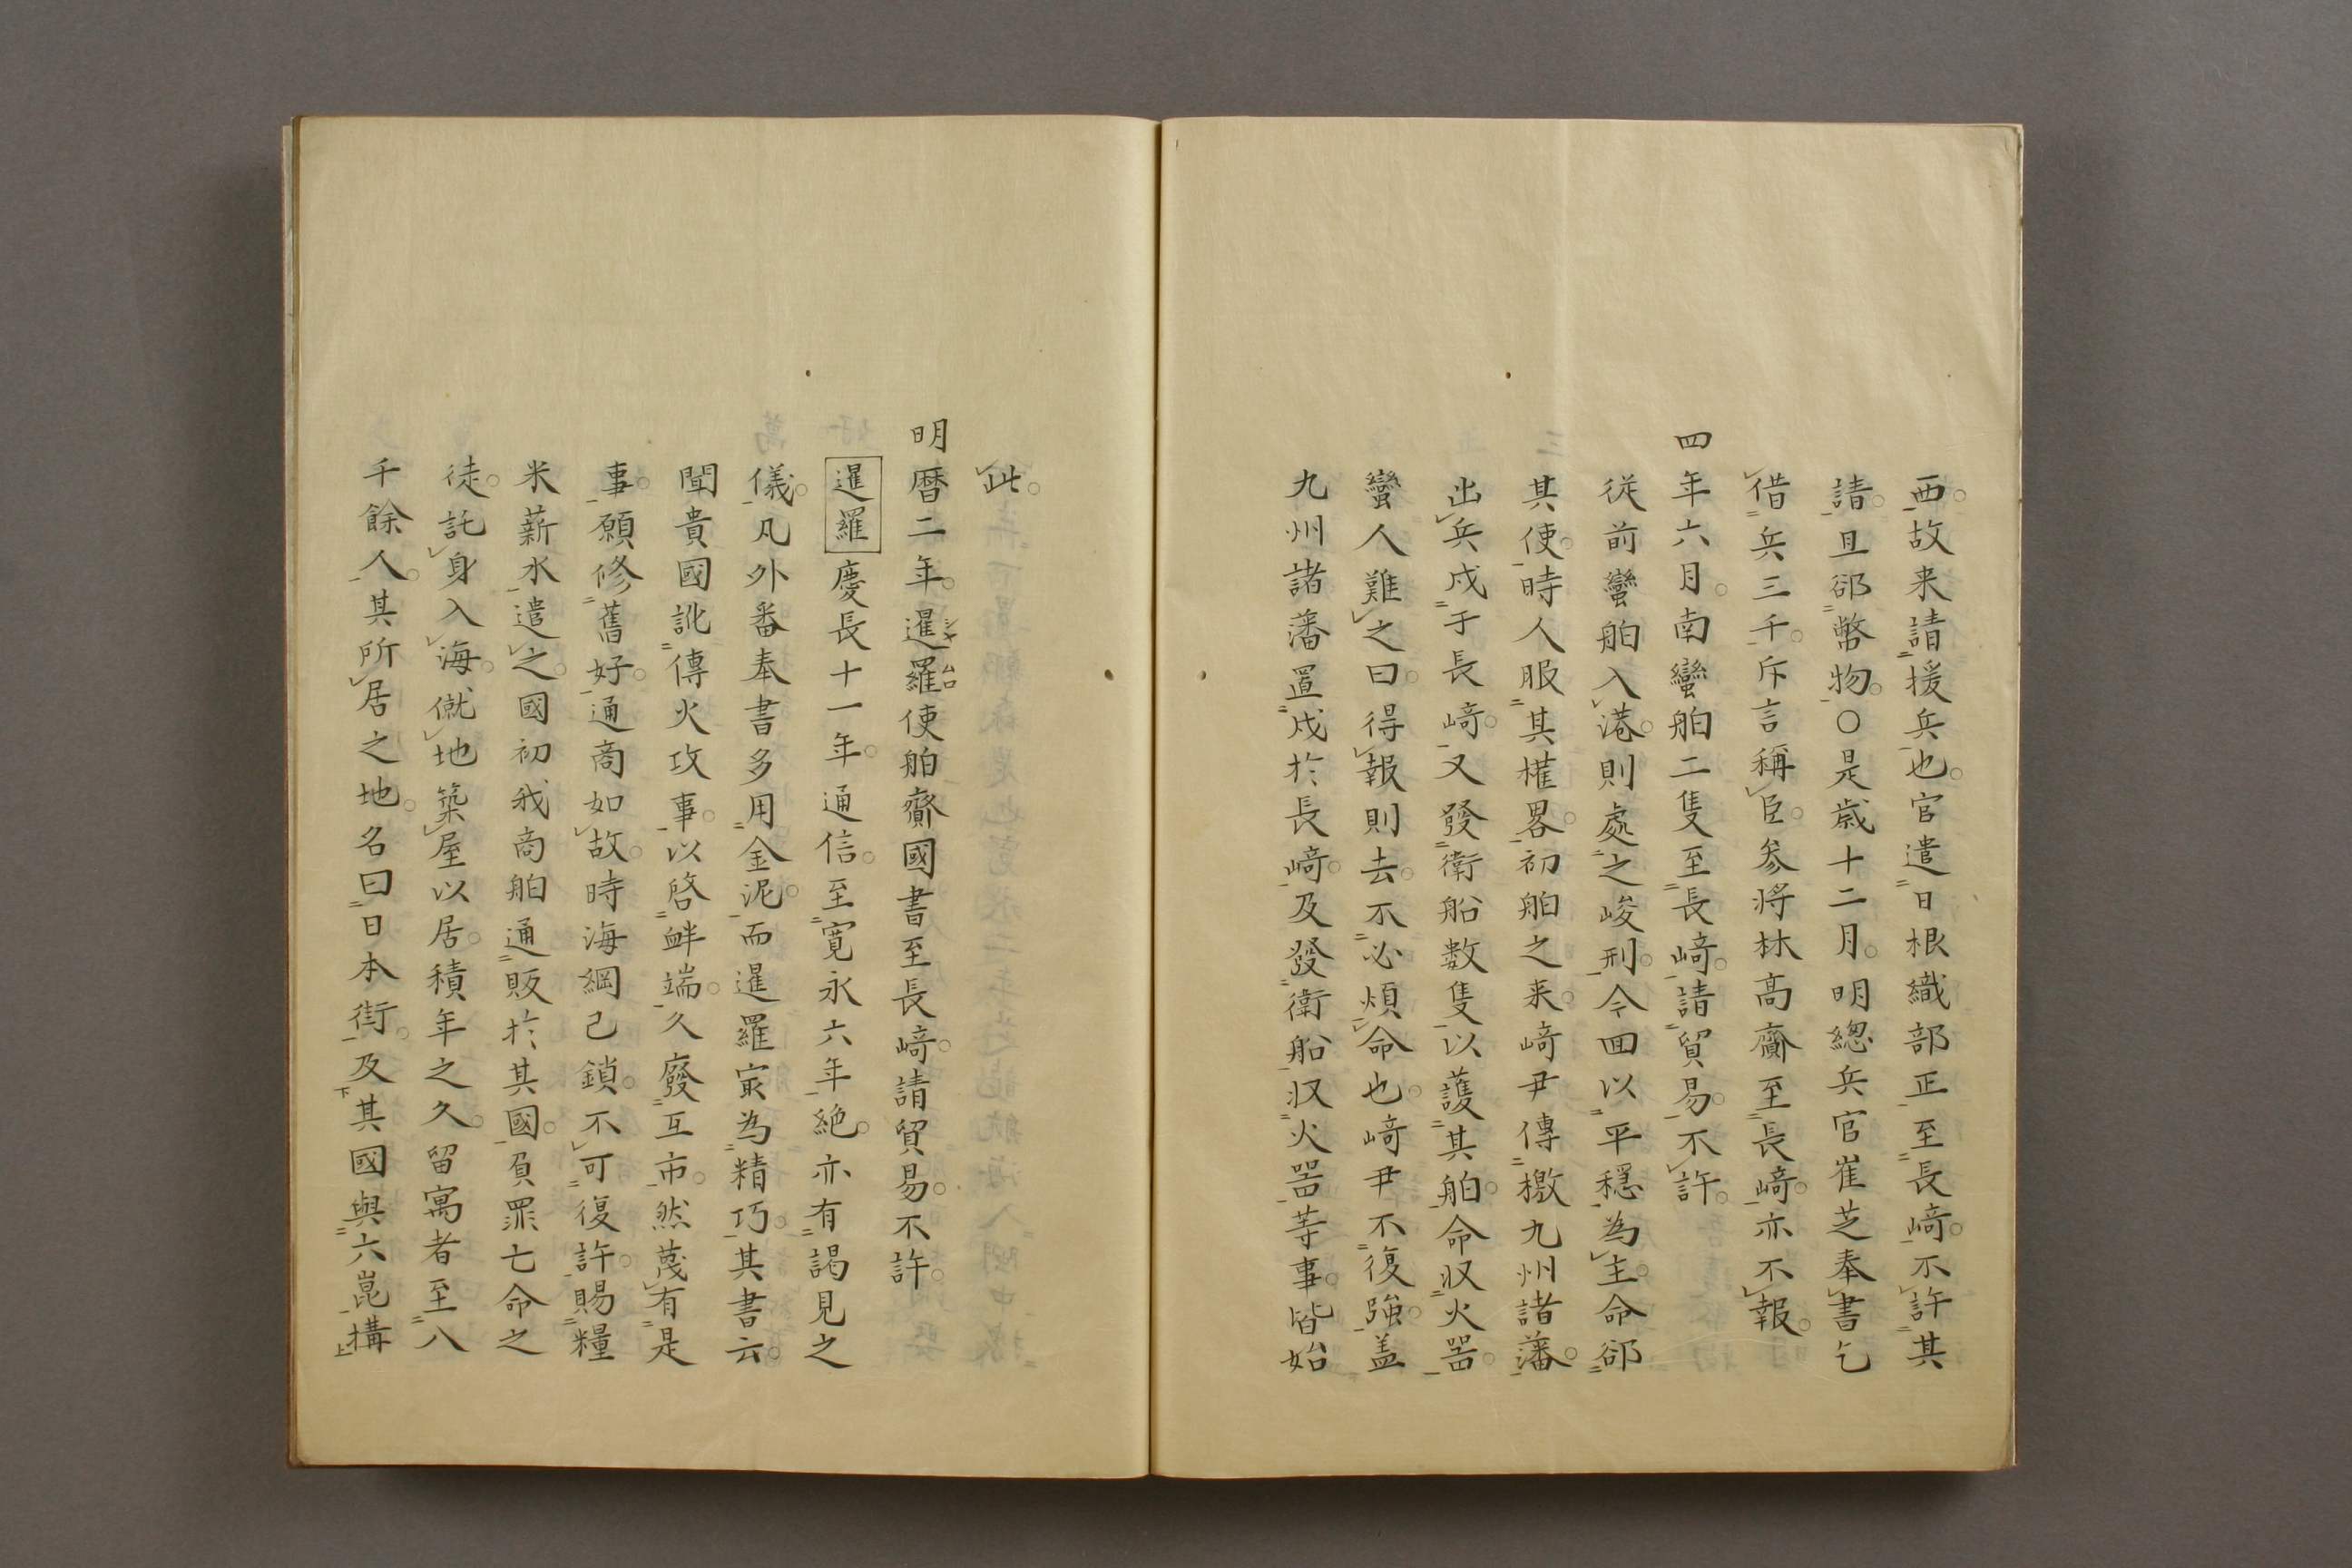 西。故来請援兵也。官遣日根織部正至長﨑。不許其
請。且郤幣物。〇是歳十二月。明總兵官崔芝奉書乞
借兵三千。斥言稱臣。叅將林高齎至長﨑。亦不報。
四年六月。南蠻舶二隻至長﨑。請貿易。不許。
従前蠻舶入港。則處之峻刑。今回以平穏為主。命郤
其使。時人服其權畧。初舶之来。﨑尹傳檄九州諸藩。
出兵戍于長﨑。又發衛船数隻以護其舶。命収火噐。
蠻人難之曰。得報則去。不必煩命也。﨑尹不復強。盖
九州諸藩置戍於長﨑。及發衛船収火噐等事。皆始
此。
明暦二年。暹羅シャムロ使舶齎國書至長﨑。請貿易。不許。
暹羅慶長十一年。通信。至寛永六年絶。亦有謁見之
儀。凡外番奉書多用金泥。而暹羅㝡為精巧。其書云。
聞貴國訛傳火攻事。以啓衅端。久廢互市。然蔑有是
事。願修舊好。通商如故。時海綱已鎖。不可復許。賜糧
米薪水遣之。國初我商舶通販於其國。負罪亡命之
徒。託身入海。僦地築屋以居。積年之久。留寓者至八
千餘人。其所居之地。名曰日本街。及其國與六崑搆